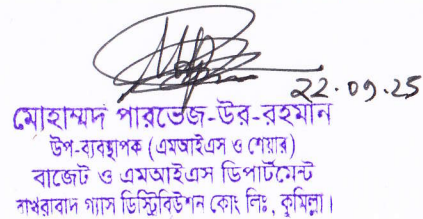 ২২.০৯.২৫
মোহাম্মদ পারভেজ-উর-রহমান
উপ-ব্যবস্থাপক (এমআইএস ও শেয়ার)
বাজেট ও এমআইএস ডিপার্টমেন্ট
বাখরাবাদ গ্যাস ডিস্ট্রিবিউশন কোং লিঃ, কুমিল্লা।